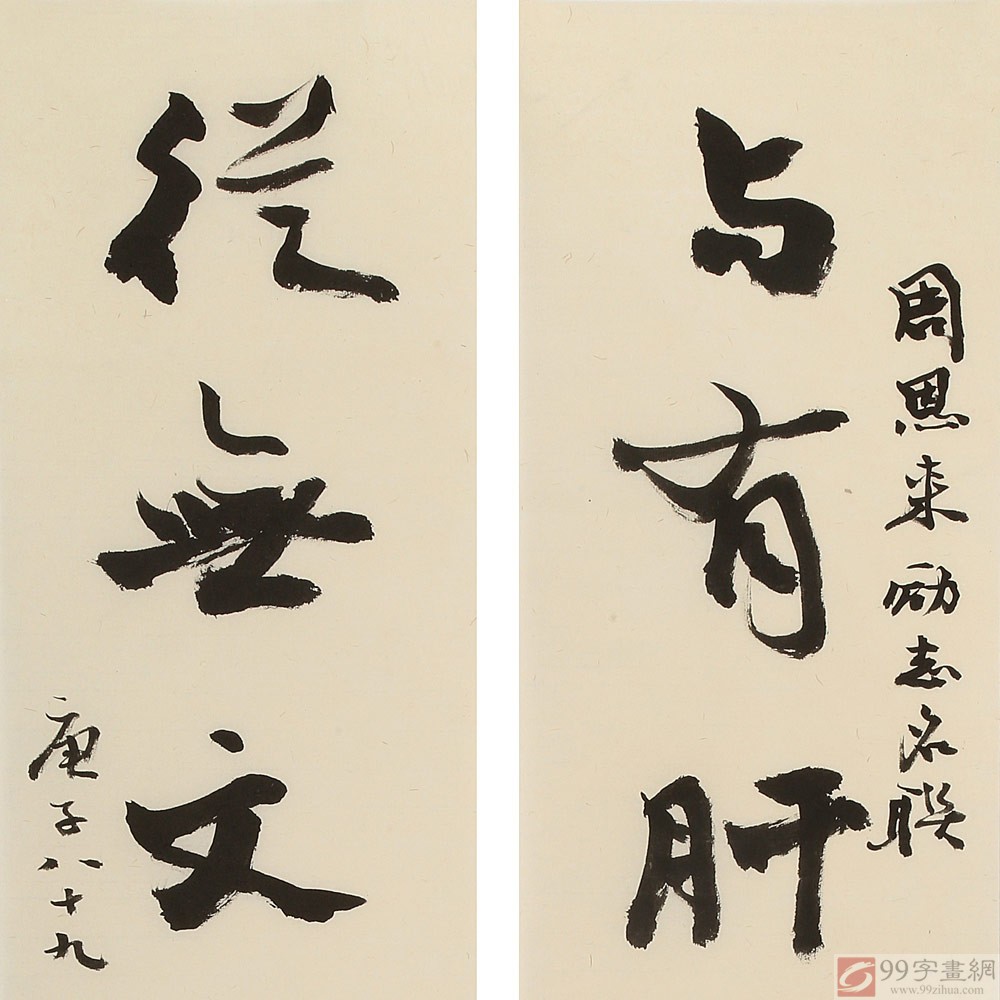 周恩来励志名联
与有肝
從無文
庚子八十九
99字畫網
www.99zihua.com